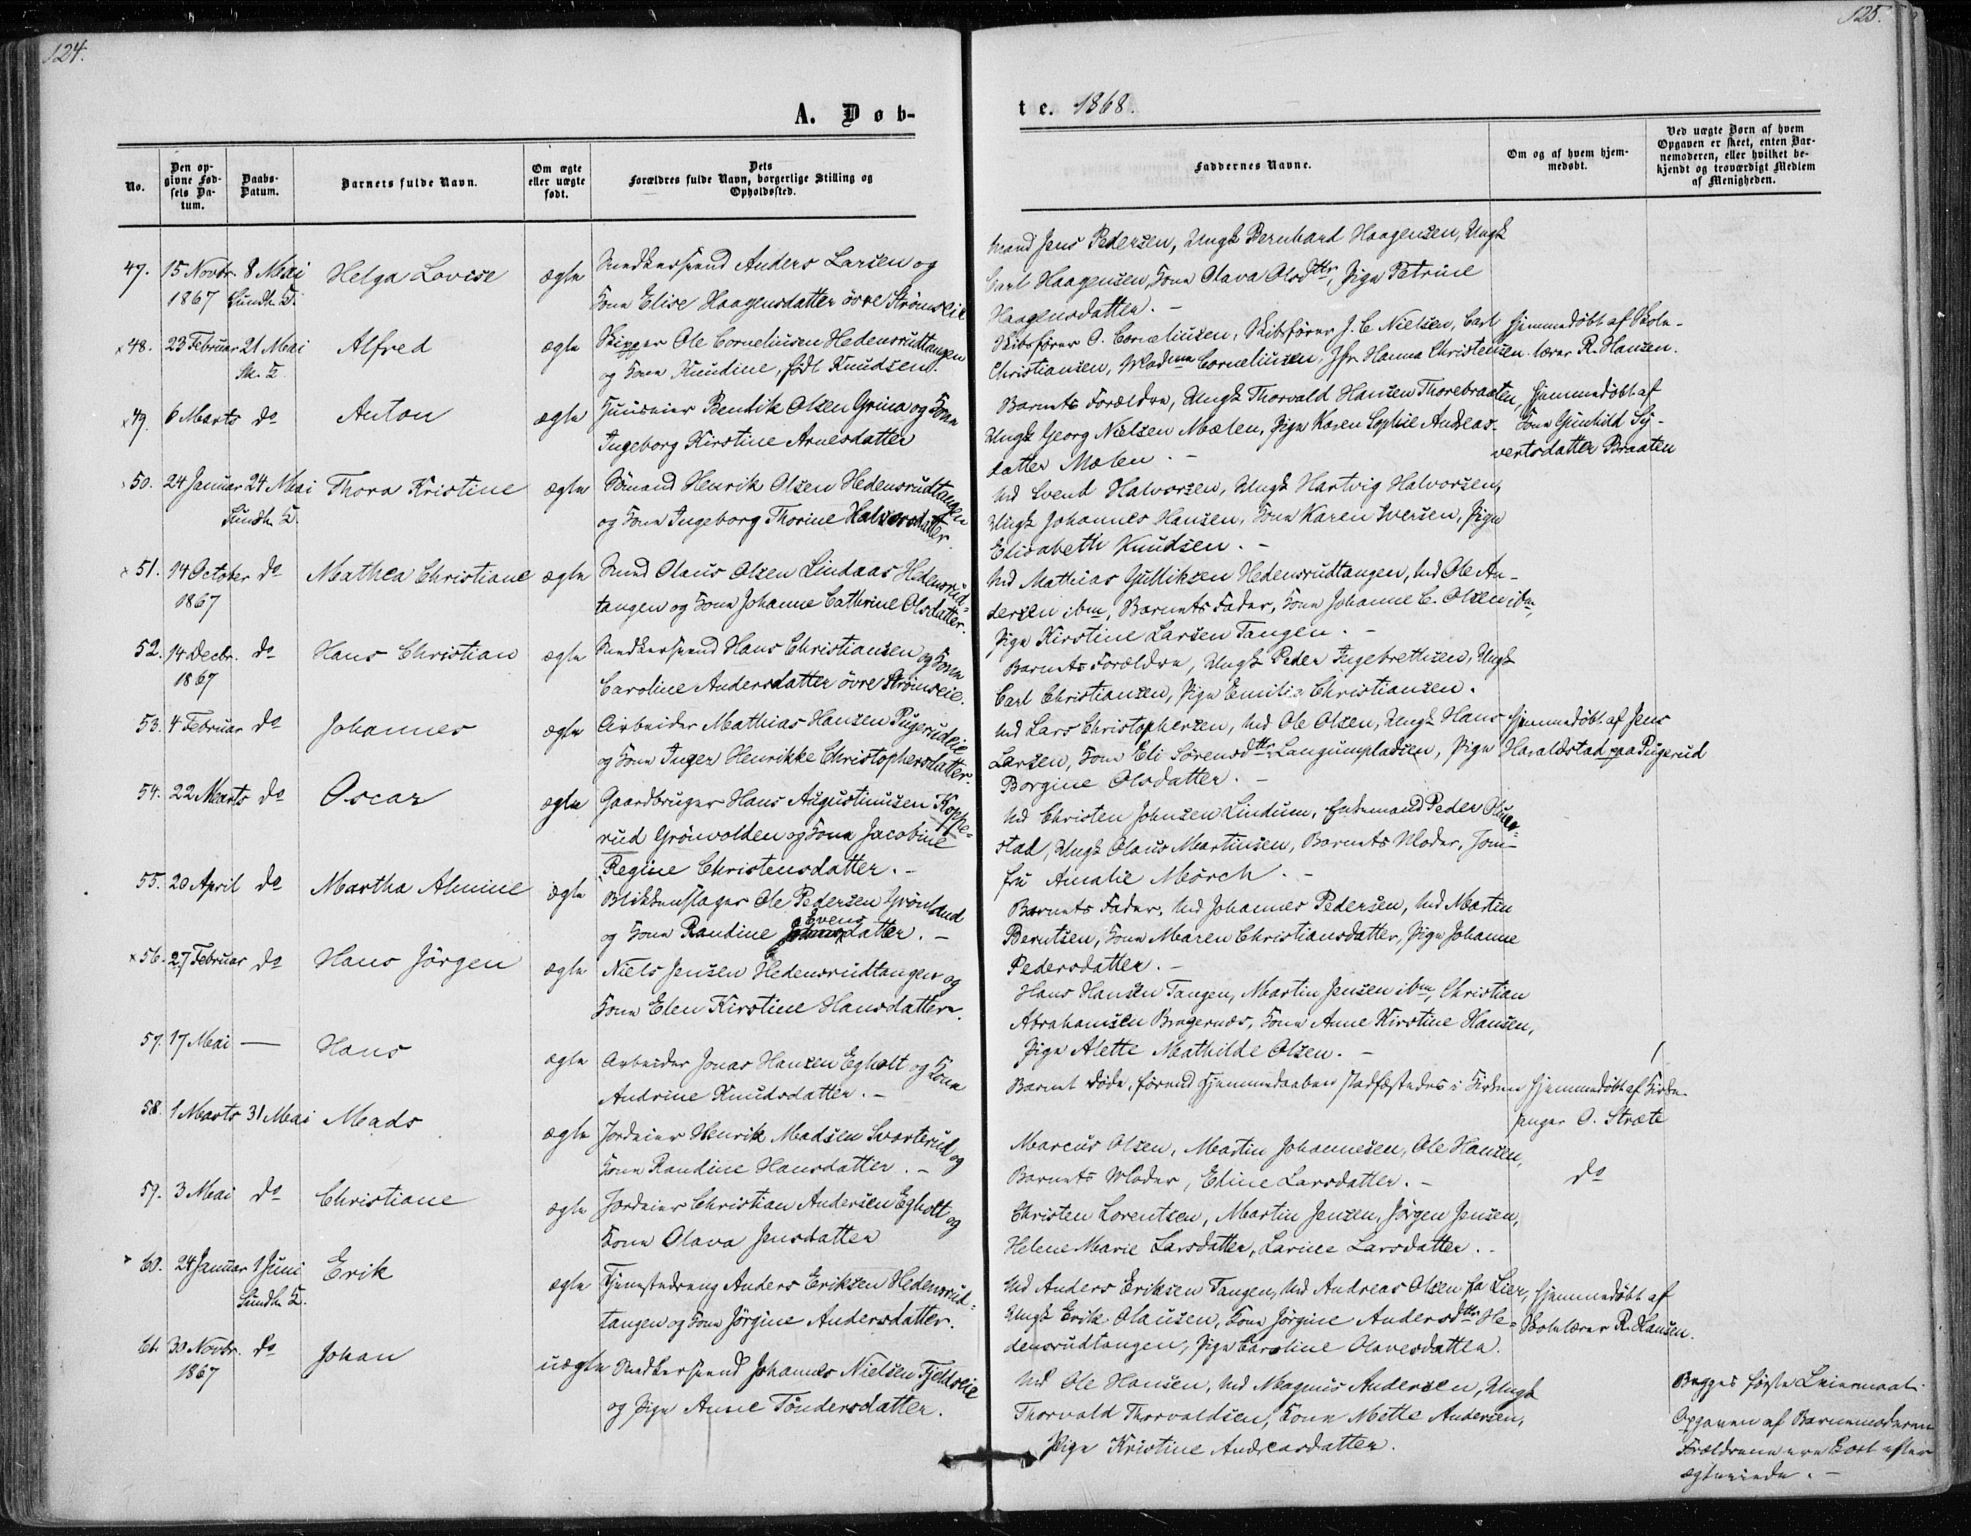 124.
125.
A. Døb-
te. 1868.
No.
Den op-
givne Fød-
sels Da-
tum.
Daabs-
Datum.
Barnets fulde Navn.
Om ægte
eller uægte
født.
Dets
Forældres fulde Navn, borgerlige Stilling og
Opholdssted.
Faddernes Navne.
Om og af hvem hjem-
medøbt.
Ved uægte Børn af hvem
Opgaven er skeet, enten Bar-
nemoderen, eller hvilket be-
kjendt og troværdigt Medlem
af Menigheden.
47. 15 Novbr. 8 Mai Helga Lovise ægte Anders Larsen og
1867
Kone Elise Haagensdatter övre Strömseie
Jens Pedersen, Ungk Bernhard Haagensen, Ungk
Carl Haagensen, Kone Olava Olsdttr, Pige Petrine
Haagensdatter. -
48. 23 Februar 21 Mai Alfred ægte Skipper Ole Corneliusen Hedensrudtangen
og Kone Knudine, født Knudsen.
Skibsfører O. Corneliusen, Skibsfører J. C. Nielsen, Carl
Christiansen, Madme Corneliusen, Jfr. Hanna Christensen.
Hjemmedøbt af Skole-
lærer R. Hansen.
49. 6 Marts do Anton ægte Huuseier Bentik Olsen Grina og Kone
Ingeborg Kirstine Arnesdatter
Barnets Forældre, Ungk Thorvald Hansen Thorebraaten,
Ungk Georg Nielsen Mælen, Pige Karen Sophie Andreas-
datter Mælen. -
Hjemmedøbt af
Kone Gunhild Sy-
vertsdatter Braaten
50. 24 Januar 24 Mai Thora Kristine ægte Sömand Henrik Olsen Hedensrudtangen
Sundh. K.
og Kone Ingeborg Thorine Halvorsdatter.
Md Svend Halvorsen, Ungk Hartvig Halvorsen,
Ungk Johannes Hansen, Kone Karen Iversen, Pige
Elisabeth Knudsen. -
51. 14 October do Mathea Christiane ægte Olaus Olsen Lindaas Hedensrud-
1867
tangen og Kone Johanne Cathrine Olsdatter.
Md Mathias Gulliksen Hedensrudtangen, Md Ole An-
dersen ibm, Barnets Fader, Kone Johanne C. Olsen ibm,
Pige Kirstine Larsen Tangen. -
52. 14 Decbr. do Hans Christian ægte Hans Christiansen og Kone
1867
Caroline Andersdatter övre Strömseie.
Barnets Forældre, Ungk Peder Ingebrethsen, Ungk
Carl Christiansen, Pige Emilie Christiansen.
53. 4 Februar do Johannes ægte Arbeider Mathias Hansen Pugerudeie
og Kone Inger Henrikke Christophersdatter.
Md Lars Christophersen, Md Ole Olsen, Ungk Hans
Larsen, Kone Eli Sörensdttr Langumpladsen, Pige
Borgine Olsdatter. -
Hjemmedøbt af Jens
Haraldstad paa Pugerud
54. 22 Marts do Oscar ægte Gaardbruger Hans Augustinusen Koppe-
rud Grönvolden og Kone Jacobine
Regine Christensdatter. -
Md Christen Johnsen Lindum, Enkemand Peder
stad, Ungk Olaus Martinsen, Barnets Moder, Jom-
fru Amalie Mörch. -
55. 20 April do Martha Almine ægte Blikkenslager Ole Pedersen Grönland
og Kone Randine Svensdatter. -
Barnets Fader, Md Johannes Pedersen, Md Martin
Berntsen, Kone Maren Christiansdatter, Pige Johanne
Pedersdatter. -
56. 27 Februar do Hans Jörgen ægte Niels Jensen Hedensrudtangen og
Kone Elen Kirstine Hansdatter.
Hans Hansen Tangen, Martin Jensen ibm, Christian
Abrahamsen Bragernæs, Kone Anne Kirstine Hansen,
Pige Alette Mathilde Olsen. -
57. 17 Mai — Hans ægte Arbeider Jonas Hansen Egholt og Kone
Andrine Knudsdatter. -
Barnet døde, førend Hjemmedaaben stadfæstedes i Kirken
Hjemmedøbt af Kirke-
sanger O. Stræte
58. 1 Marts 31 Mai Mads ægte Jordeier Henrik Madsen Svarterud og
Kone Randine Hansdatter. -
Marcus Olsen, Martin Johannesen, Ole Hansen,
Barnets Moder, Eline Larsdatter. -
do
59. 3 Mai do Christiane ægte Jordeier Christian Andersen Egholt og
Kone Olava Jensdatter
Christen Lorentsen, Martin Jensen, Jörgen Jensen,
Helene Marie Larsdatter, Larine Larsdatter. -
60. 24 Januar 1 Juni Erik ægte Tjenestedreng Anders Eriksen Hedensrud-
Sundh. K.
tangen og Kone Jörgine Andersdatter.
Md Anders Eriksen Tangen, Md Andreas Olsen fra Lier,
Ungk Erik Olausen, Kone Jörgine Andersdttr He-
densrudtangen, Pige Caroline Olavesdatter.
Hjemmedøbt af
Skolelærer R. Hansen.
61. 30 Novbr. do Johan uægte Johannes Nielsen Fjeldseie
1867
og Pige Anne Töndersdatter.
Md Ole Hansen, Md Magnus Andersen, Ungk
Thorvald Thorvaldsen, Kone Mette Andersen,
Pige Kristine Andreasdatter.
Begges første Leiermaal.
Opgaven af Barnemoderen
Forældrene ere kort efter
ægteviede. -